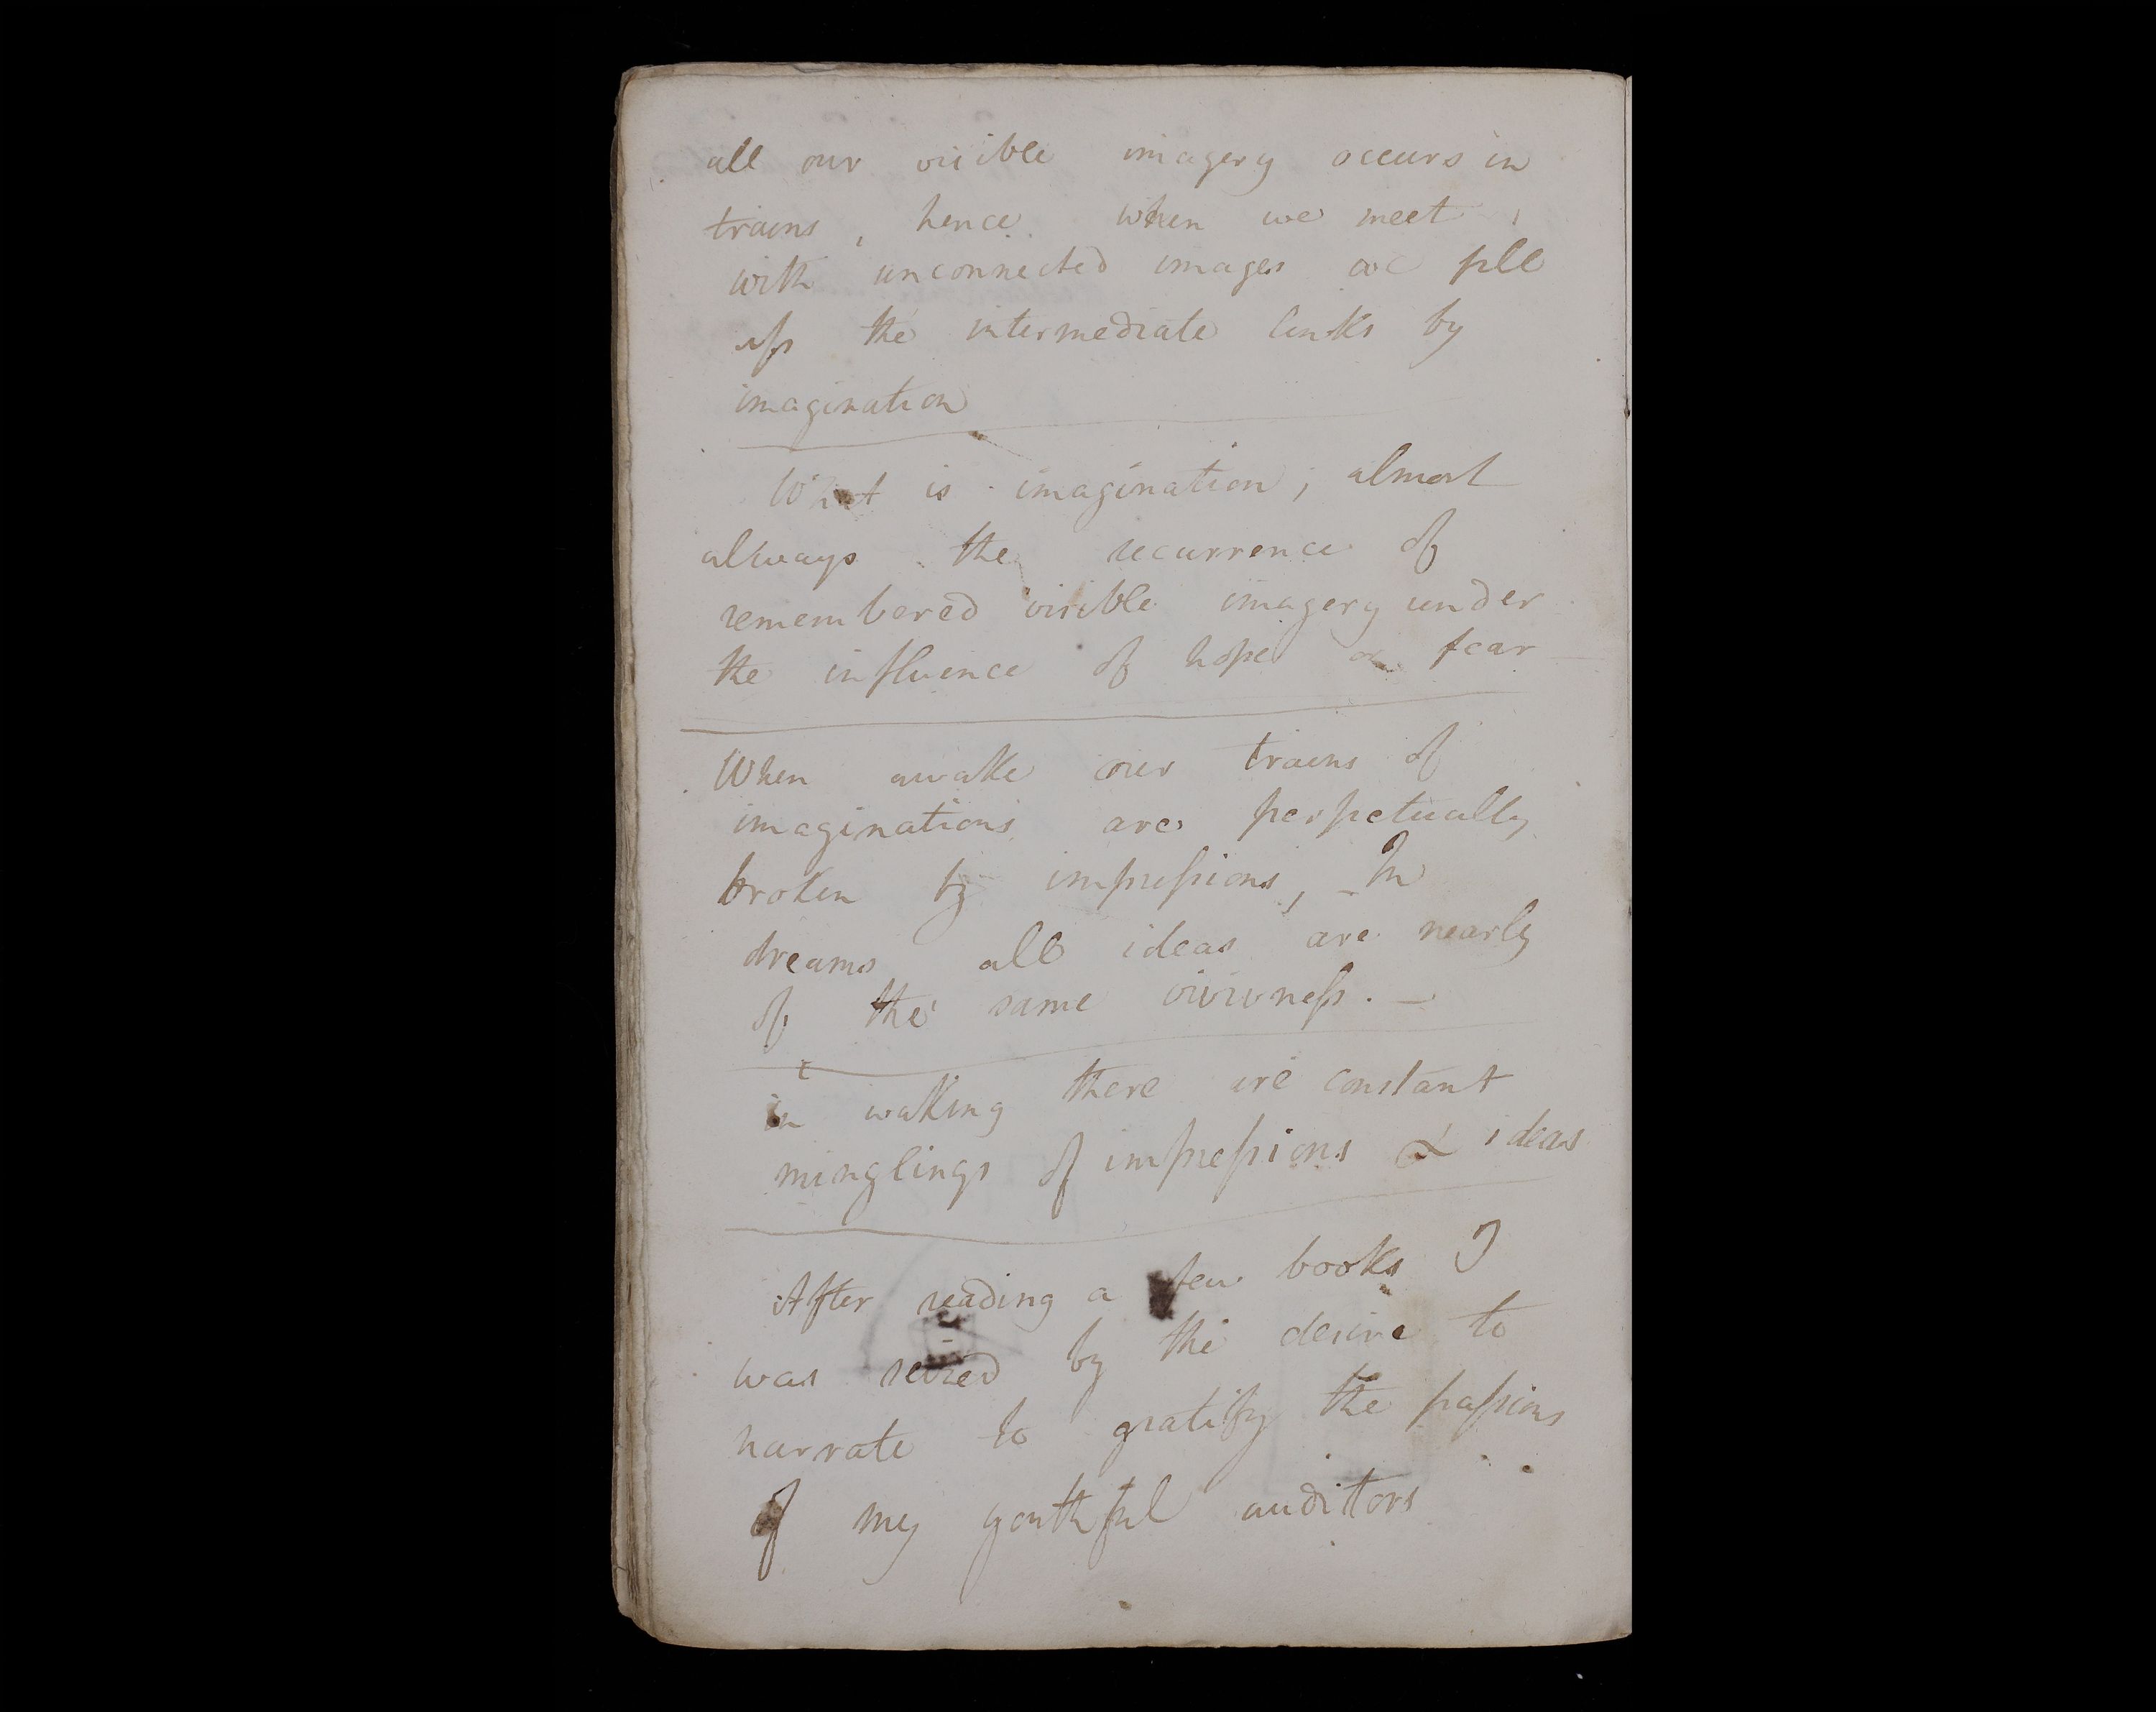 all our visible imagery occurs in
trains, hence when we meet
with unconnected images we fill
up the intermediate links by
imagination
What is imagination; almost
always the recurrence of
remembered visible imagery under
the influence of hope or fear
When awake our trains of
imaginations are perpetually
broken by impressions, In
dreams all ideas are nearly
of the same vivivness. —
in waking there are constant
minglings of impressions & ideas
After reading a few books I
was seized by the desire to
narrate to gratify the passions
of my youthful auditors